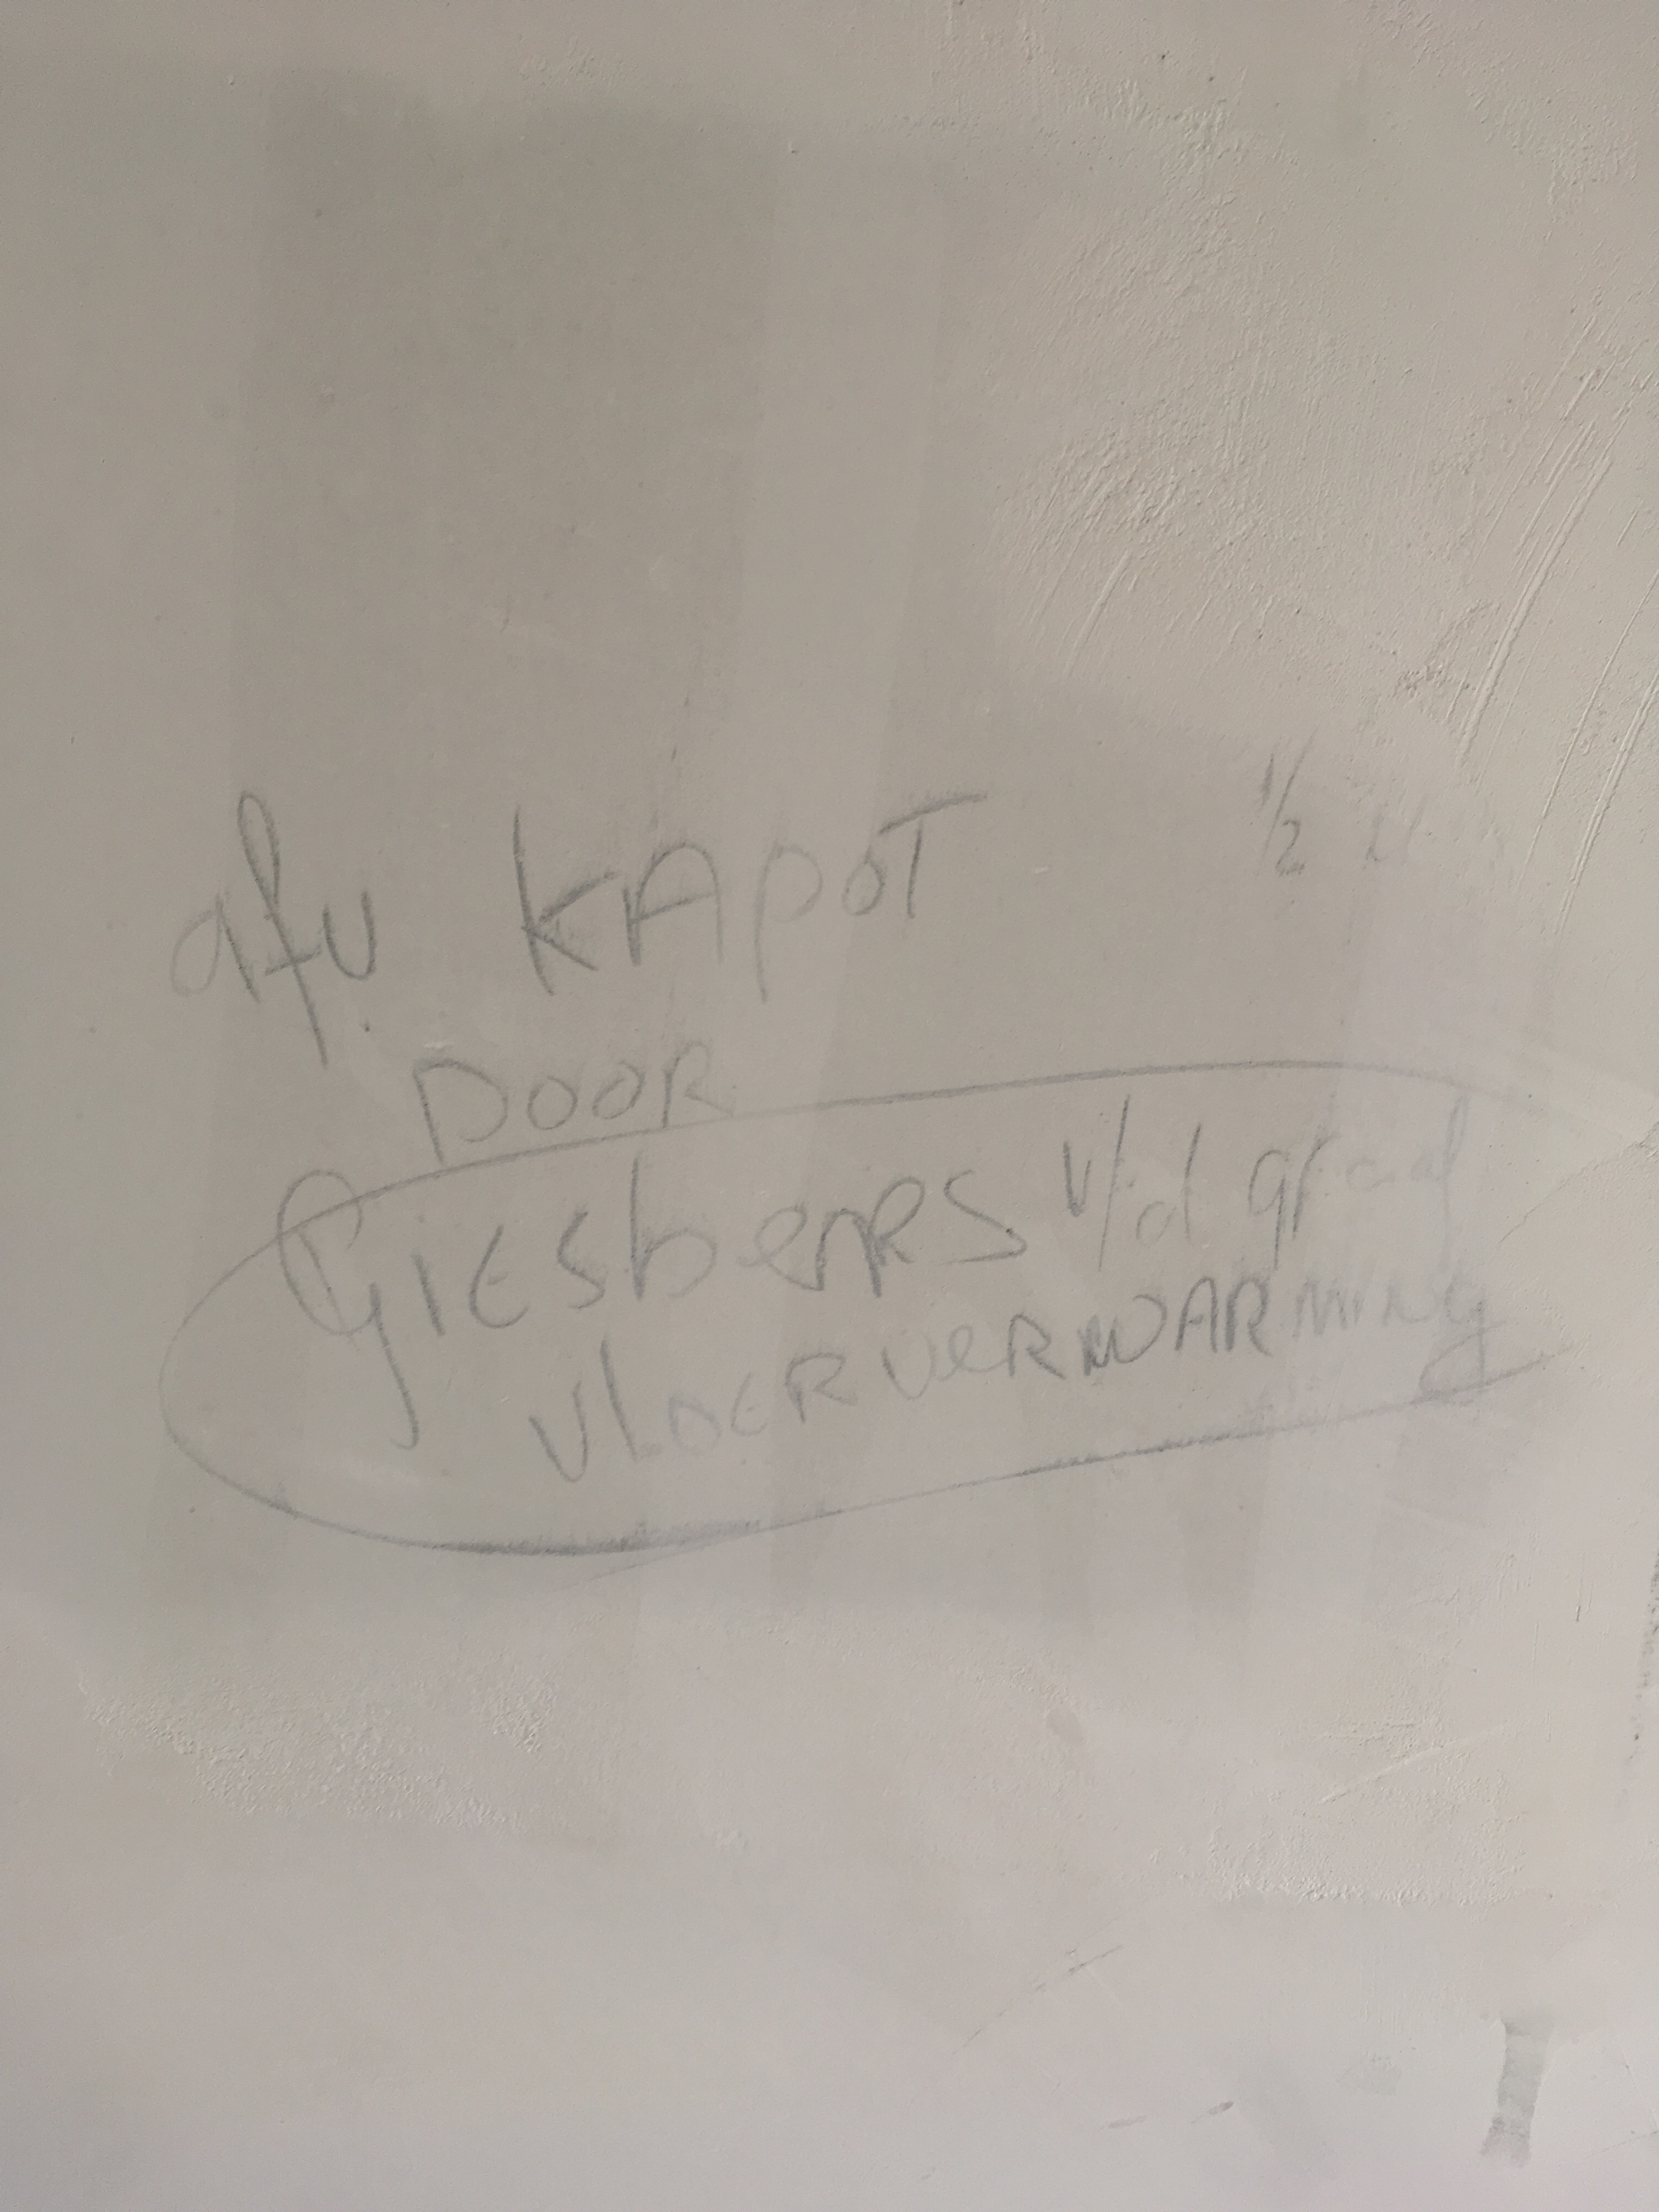 afv. KAPOT 1/2 u
DOOR
GIESbeRRS v/d graaf
VLOERVERWARMING